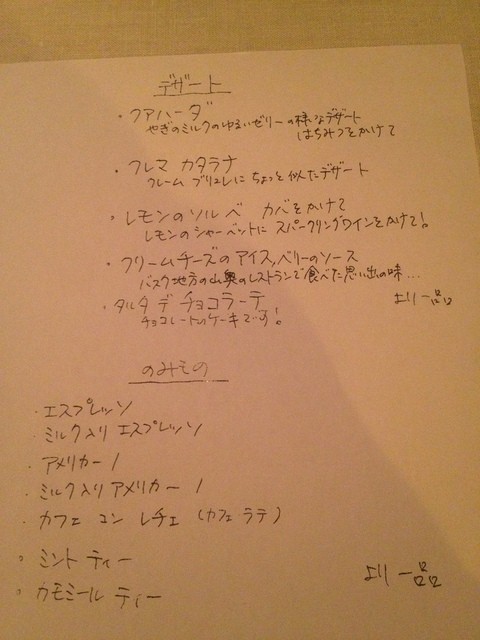 デザート
・クアハーダ
やぎのミルクのゆるいゼリーの様なデザート
はちみつをかけて
・クレマ カタラナ
クレーム ブリュレにちょっと似たデザート
・レモンのソルベ カバをかけて
レモンのシャーベットに スパークリングワインをかけて!
・クリームチーズのアイス,ベリーのソース
バスク地方の山奥のレストランで食べた思い出の味…
・タルタ デ チョコラーテ
より一品
チョコレートのケーキです!
のみもの
・エスプレッソ
・ミルク入り エスプレッソ
・アメリカーノ
・ミルク入り アメリカーノ
・カフェ コン レチェ (カフェ ラテ)
・ミント ティー
より一品
・カモミール ティー